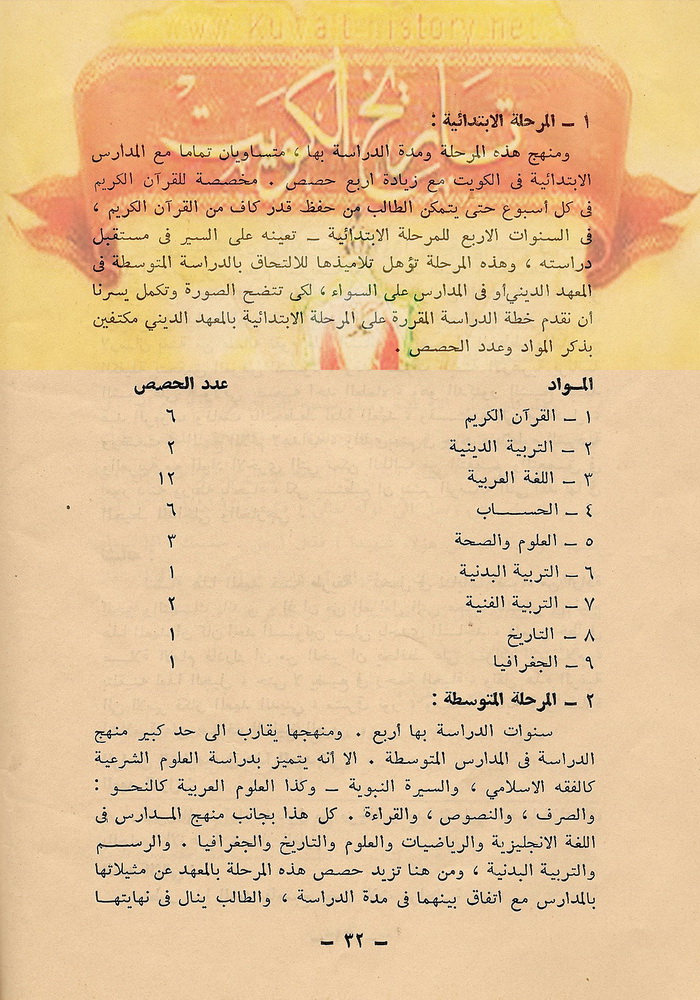 www.kuwait-history.net
تاريخ الكويت
١ ــ المرحلة الابتدائية :
ومنهج هذه المرحلة ومدة الدراسة بها ، متساويان تماما مع المدارس
الابتدائية فى الكويت مع زيادة اربع حصص . مخصصة للقرآن الكريم
فى كل أسبوع حتى يتمكن الطالب من حفظ قدر كاف من القرآن الكريم ،
فى السنوات الاربع للمرحلة الابتدائية ــ تعينه على السير فى مستقبل
دراسته ، وهذه المرحلة تؤهل تلاميذها للالتحاق بالدراسة المتوسطة فى
المعهد الديني أو فى المدارس على السواء ، لكى تتضح الصورة وتكمل يسرنا
أن نقدم خطة الدراسة المقررة على المرحلة الابتدائية بالمعهد الديني مكتفين
بذكر المواد وعدد الحصص .
المـواد عدد الحصص
١ ــ القرآن الكريم ٦
٢ ــ التربية الدينية ٢
٣ ــ اللغة العربية ١٢
٤ ــ الحســـاب ٦
٥ ــ العلوم والصحة ٣
٦ ــ التربية البدنية ١
٧ ــ التربية الفنية ٢
٨ ــ التاريخ ١
٩ ــ الجغرافيا ١
٢ ــ المرحلة المتوسطة :
سنوات الدراسة بها أربع . ومنهجها يقارب الى حد كبير منهج
الدراسة فى المدارس المتوسطة . الا أنه يتميز بدراسة العلوم الشرعية
كالفقه الاسلامي ، والسيرة النبوية ــ وكذا العلوم العربية كالنحـو :
والصرف ، والنصوص ، والقراءة . كل هذا بجانب منهج المـدارس فى
اللغة الانجليزية والرياضيات والعلوم والتاريخ والجغرافيا . والرســم
والتربية البدنية ، ومن هنا تزيد حصص هذه المرحلة بالمعهد عن مثيلاتها
بالمدارس مع اتفاق بينهما فى مدة الدراسة ، والطالب ينال فى نهايتهـا
ــ ٣٢ ــ